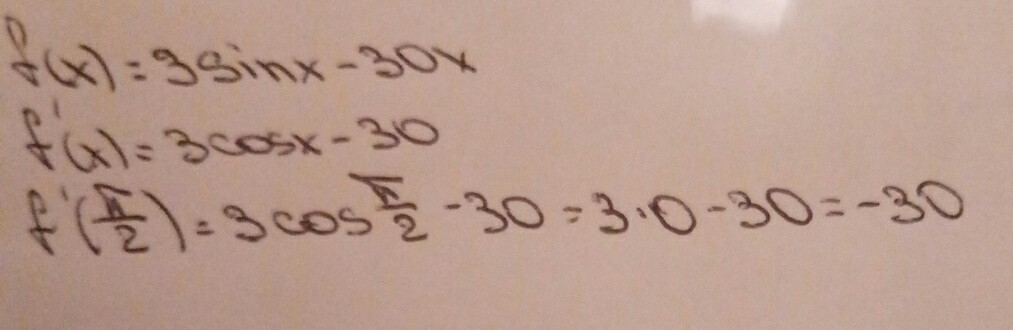 f(x) = 3sinx - 30x
f'(x) = 3cosx - 30
f'(π/2) = 3cos π/2 - 30 = 3·0 - 30 = -30